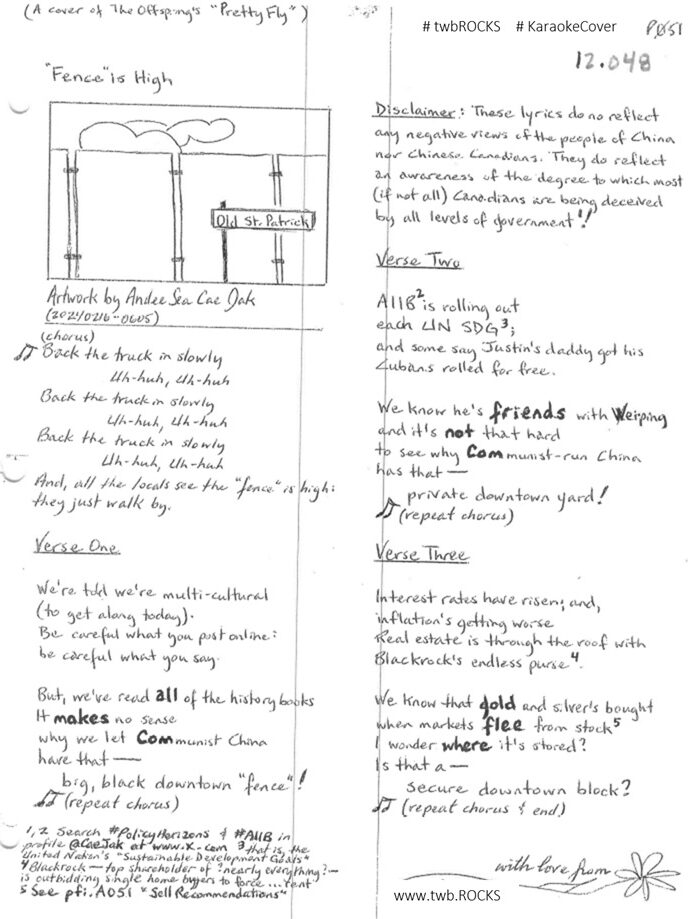 (A cover of The Offspring's "Pretty Fly")
# twbROCKS # KaraokeCover
PØ51
12.048
"Fence" is High
Old St. Patrick
Artwork by Andee Sea Cae Jak
(202410216-0605)
(chorus)
Back the truck in slowly
Uh-huh, Uh-huh
Back the truck in slowly
Uh-huh, Uh-huh
Back the truck in slowly
Uh-huh, Uh-huh
And, all the locals see the "fence" is high:
they just walk by.
Verse One
We're told we're multi-cultural
(to get along today).
Be careful what you post online:
be careful what you say.
But, we've read all of the history books
It makes no sense
why we let Communist China
have that —
big, black downtown "fence"!
(repeat chorus)
1,2 Search #PolicyHorizons & #AIIB in
profile @CaeJak at www.X.com 3 that is, the
United Nation's "Sustainable Development Goals"
4 Blackrock — top shareholder of ?nearly everything? —
is outbidding single home buyers to force ... rent
5 See pfi.A051 "Sell Recommendations"
Disclaimer: These lyrics do no reflect
any negative views of the people of China
nor Chinese Canadians. They do reflect
an awareness of the degree to which most
(if not all) Canadians are being deceived
by all levels of government¹!
Verse Two
AIIB² is rolling out
each UN SDG³;
and some say Justin's daddy got his
Cubans rolled for free.
We know he's friends with Weirping
and it's not that hard
to see why Communist-run China
has that —
private downtown yard!
(repeat chorus)
Verse Three
Interest rates have risen; and,
inflation's getting worse
Real estate is through the roof with
Blackrock's endless purse⁴.
We know that gold and silver's bought
when markets flee from stock⁵
I wonder where it's stored?
Is that a —
secure downtown block?
(repeat chorus & end)
with love from
www.twb.ROCKS